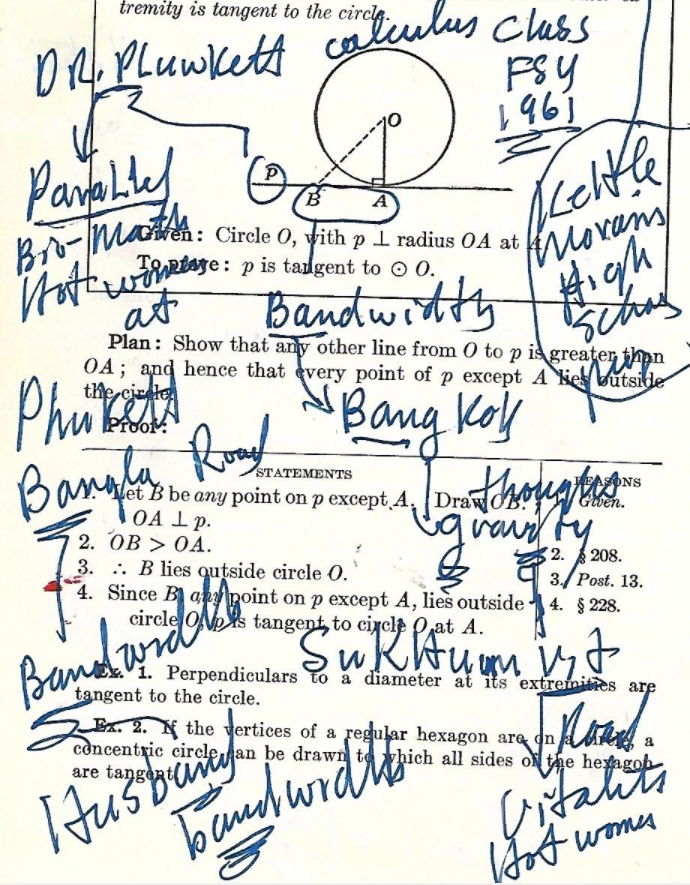 tremity is tangent to the circle.
calculus Class
DR. PLUNKETT
FSU
1961
O
P
B A
Parallel
Kettle
Morains
High
School
Bro-Math
Given: Circle O, with p ⊥ radius OA at A.
To prove: p is tangent to ⊙ O.
Hot women
at
Bandwidth
Plan: Show that any other line from O to p is greater than
OA; and hence that every point of p except A lies outside
the circle.
Phukett
Bang Kok
Proof:
Bangla Road
STATEMENTS
REASONS
thoughs
gravity
1. Let B be any point on p except A. Draw OB.
OA ⊥ p.
1. Given.
2. OB > OA.
2. § 208.
3. ∴ B lies outside circle O.
3. Post. 13.
4. Since B, any point on p except A, lies outside
circle O, p is tangent to circle O at A.
4. § 228.
Bandwidth
SuKHumvit
Road
Ex. 1. Perpendiculars to a diameter at its extremities are
tangent to the circle.
Ex. 2. If the vertices of a regular hexagon are on a circle, a
concentric circle can be drawn to which all sides of the hexagon
are tangent.
Husband
bandwidth
Vitality
Hot women